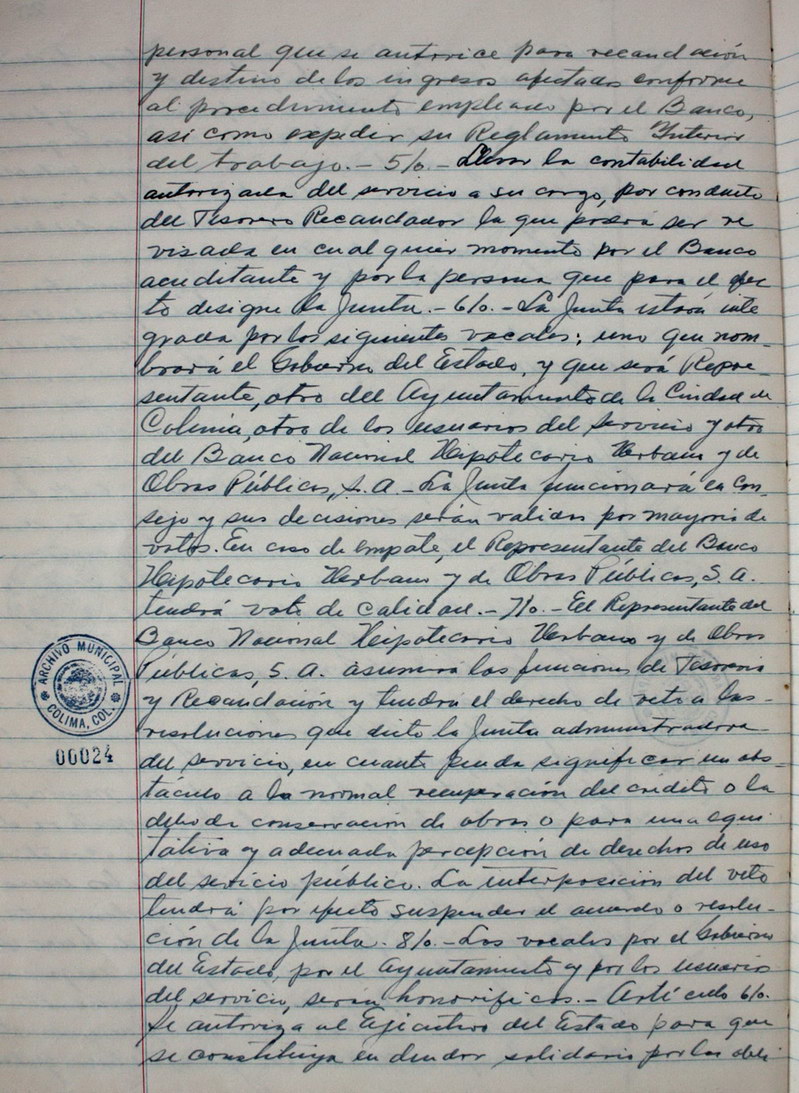 personal que se autorice para recaudación
y destino de los ingresos afectados conforme
al procedimiento empleado por el Banco,
así como expedir su Reglamento Interior
del trabajo.- 5/o.- Llevar la contabilidad
autorizada del servicio a su cargo, por conducto
del Tesorero Recaudador la que podrá ser re
visada en cualquier momento por el Banco
acreditante y por la persona que para el efec
to designe la Junta.- 6/o.- La Junta estará inte
grada por los siguientes vocales: uno que nom-
brará el Gobierno del Estado, y que será Repre-
sentante, otro del Ayuntamiento de la Ciudad de
Colima, otro de los usuarios del servicio y otro
del Banco Nacional Hipotecario Urbano y de
Obras Públicas, S. A.- La Junta funcionará en con-
sejo y sus decisiones serán validas por mayoría de
votos. En caso de empate, el Representante del Banco
Hipotecario Urbano y de Obras Públicas, S. A.
tendrá voto de calidad.- 7/o.- El Representante del
Banco Nacional Hipotecario Urbano y de Obras
Públicas, S. A. asumirá las funciones de Tesorería
y Recaudación y tendrá el derecho de veto a las
resoluciones que dicte la Junta administradora
del servicio, en cuanto pueda significar un obs-
táculo a la normal recuperación del crédito o la
debida conservación de obras o para una equi
tativa y adecuada percepción de derechos de uso
del servicio público. La interposición del veto
tendrá por efecto suspender el acuerdo o resolu-
ción de la Junta. 8/o.- Los vocales por el Gobierno
del Estado, por el Ayuntamiento y por los usuarios
del servicio, serán honoríficos.- Artículo 6/o.
Se autoriza al Ejecutivo del Estado para que
se constituya en deudor solidario por las obli
ARCHIVO MUNICIPAL
COLIMA, COL.
00024